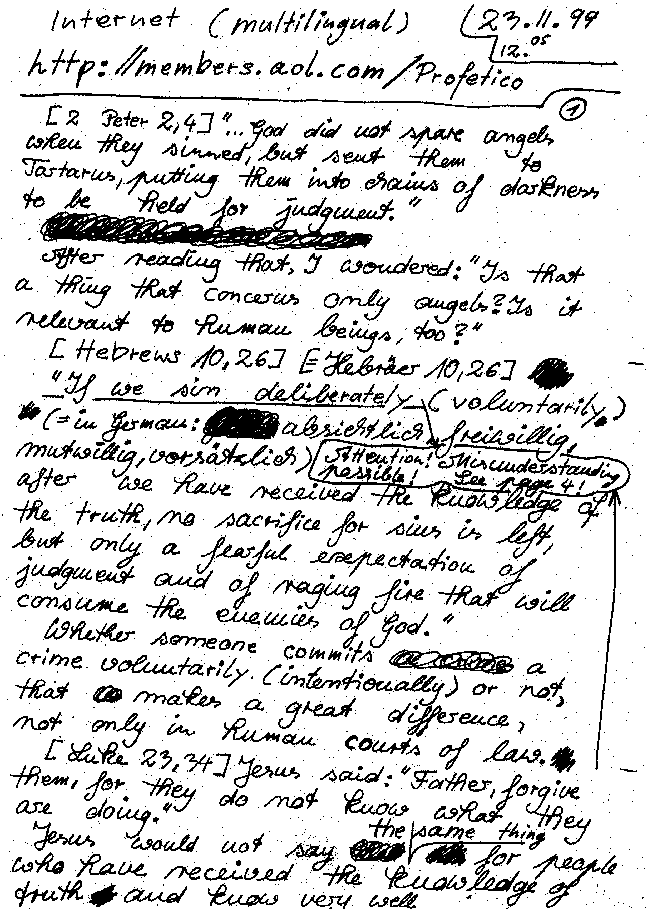 Internet (multilingual)
23.11.99
12.05
http://members.aol.com/Profetico
1
[2 Peter 2,4] "...God did not spare angels
when they sinned, but sent them to
Tartarus, putting them into chains of darkness
to be held for judgment."
After reading that, I wondered: "Is that
a thing that concerns only angels? Is it
relevant to human beings, too?"
[Hebrews 10,26] [=Hebräer 10,26]
"If we sin deliberately (voluntarily)
(=in German: absichtlich, freiwillig,
mutwillig, vorsätzlich)
Attention! Misunderstanding
possible! See page 4!
after we have received the knowledge of
the truth, no sacrifice for sins is left,
but only a fearful expectation of
judgment and of raging fire that will
consume the enemies of God."
Whether someone commits a
crime voluntarily (intentionally) or not,
that makes a great difference,
not only in human courts of law.
[Luke 23,34] Jesus said: "Father, forgive
them, for they do not know what they
are doing."
Jesus would not say the same thing for people
who have received the knowledge of
truth and know very well